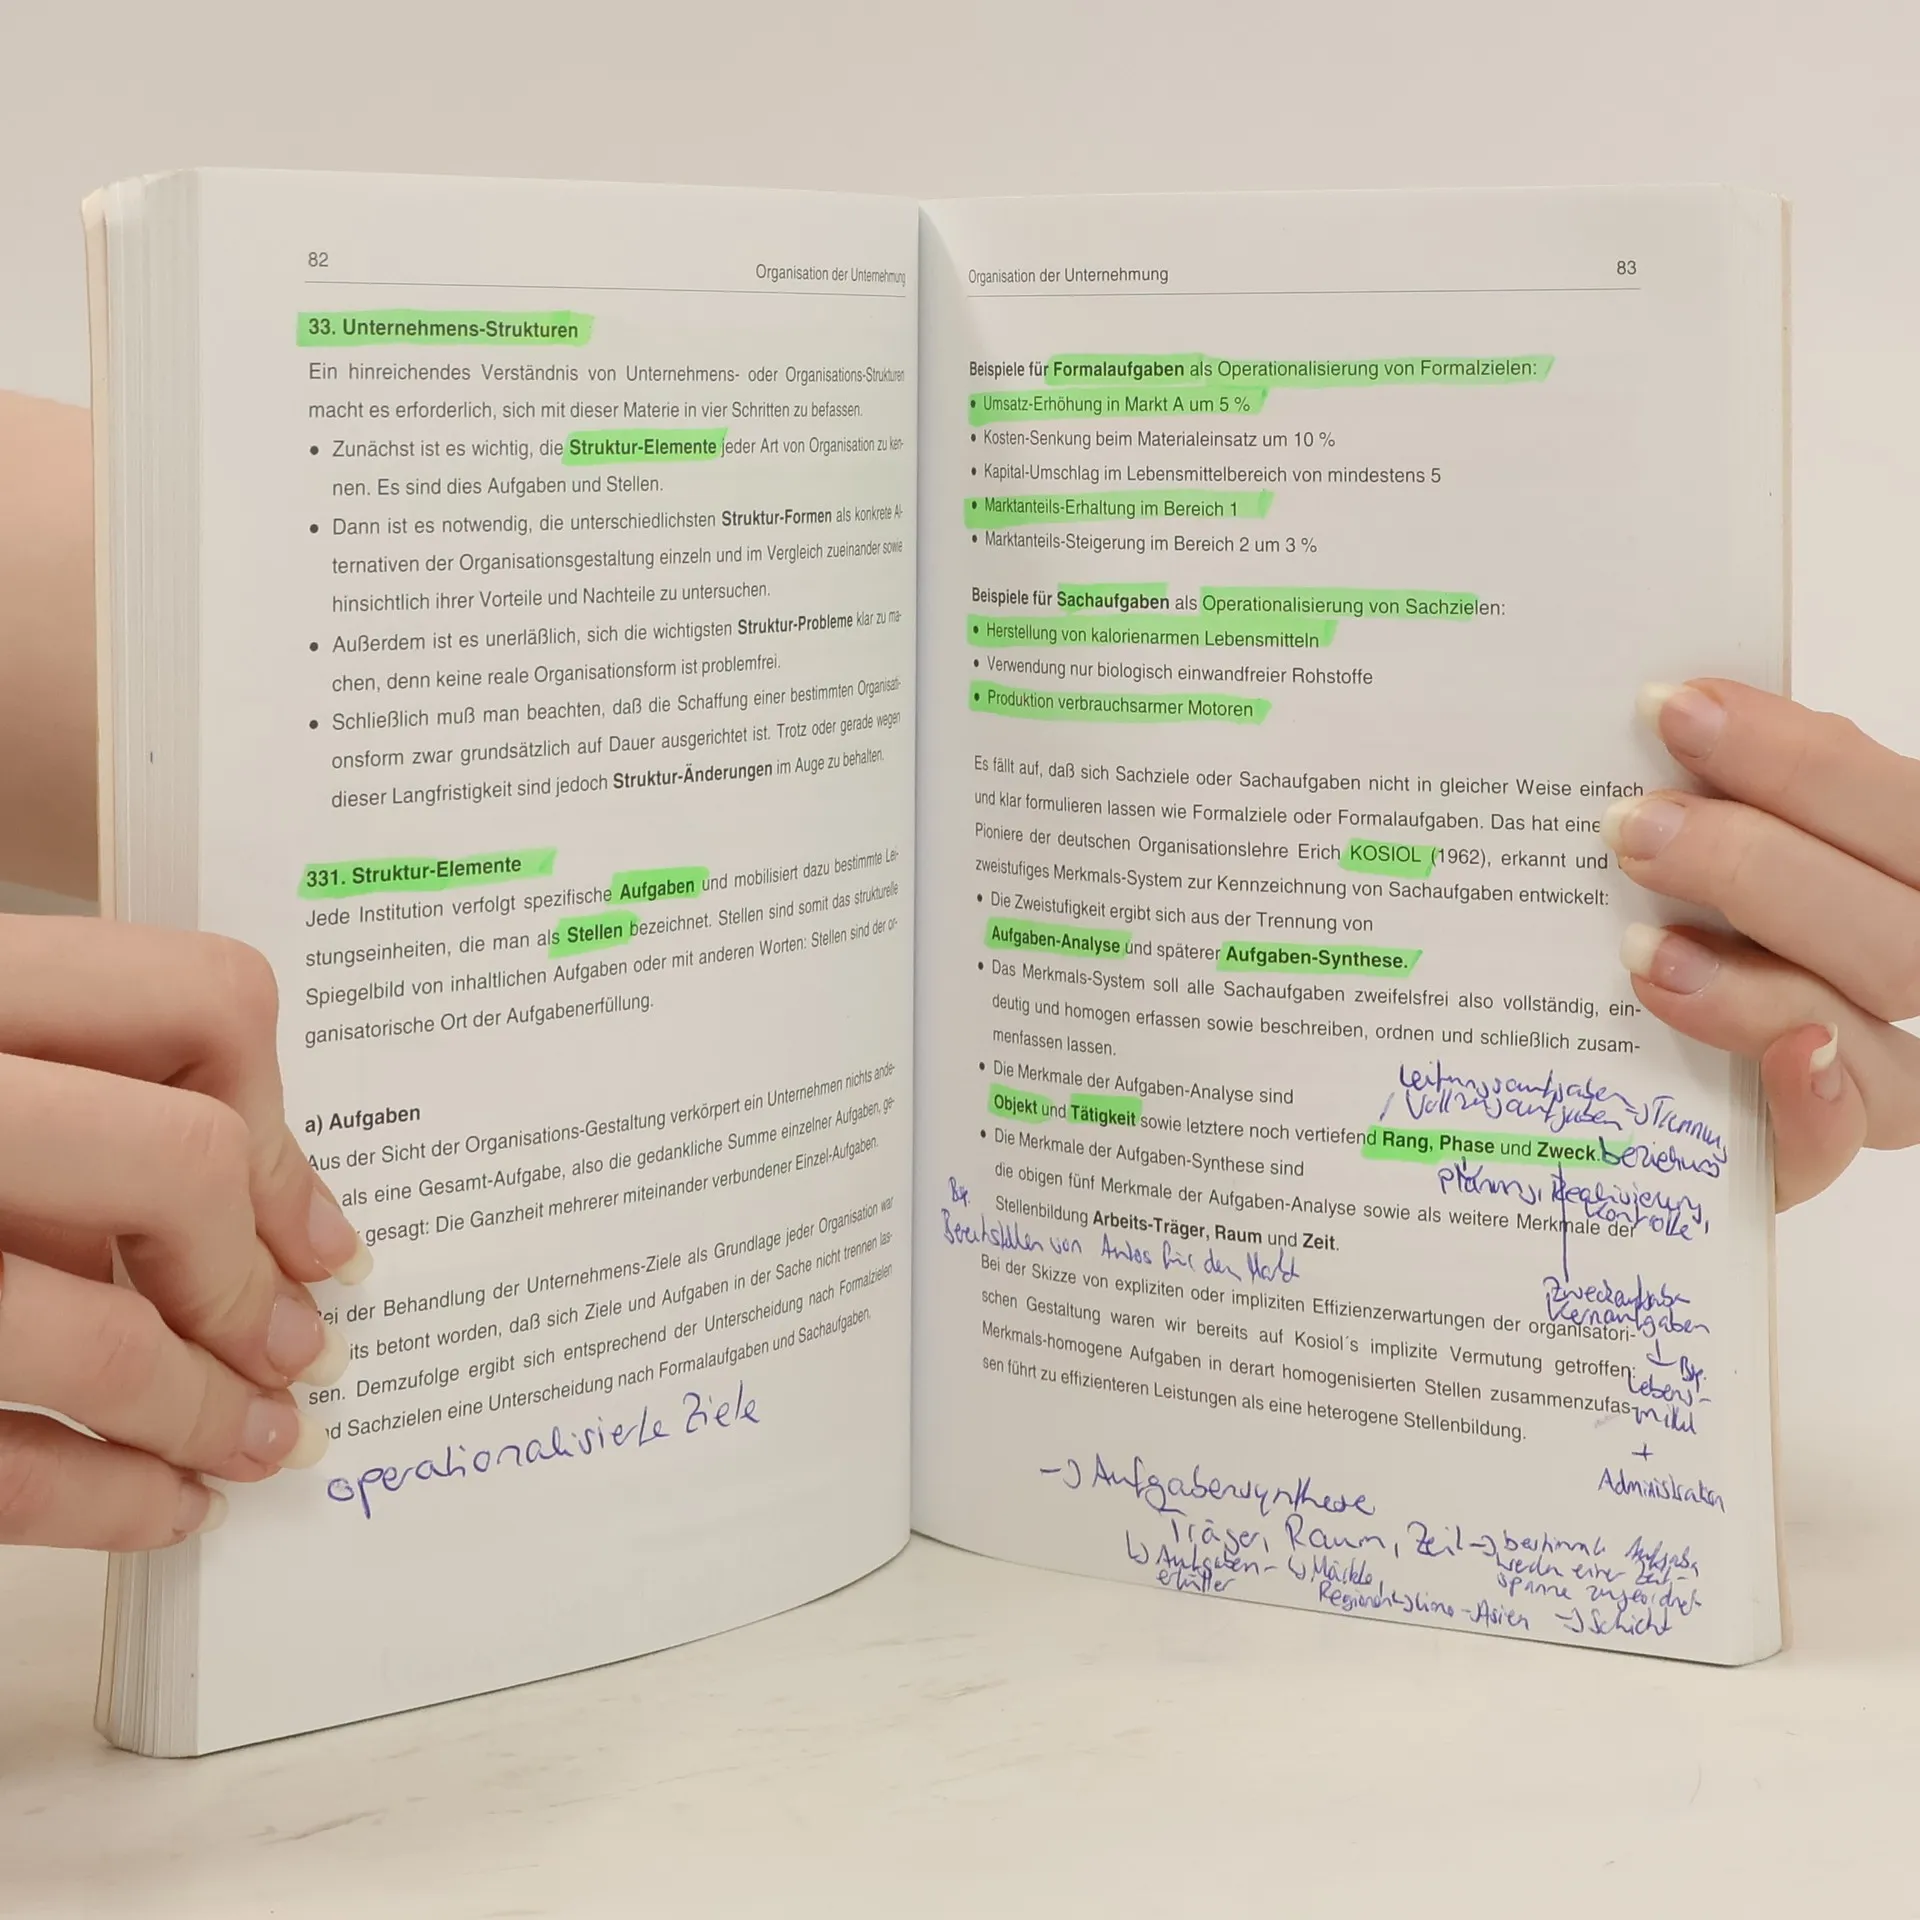 82
Organisation der Unternehmung
33. Unternehmens-Strukturen
Ein hinreichendes Verständnis von Unternehmens- oder Organisations-Strukturen
macht es erforderlich, sich mit dieser Materie in vier Schritten zu befassen.
• Zunächst ist es wichtig, die Struktur-Elemente jeder Art von Organisation zu ken-
nen. Es sind dies Aufgaben und Stellen.
• Dann ist es notwendig, die unterschiedlichsten Struktur-Formen als konkrete Al-
ternativen der Organisationsgestaltung einzeln und im Vergleich zueinander sowie
hinsichtlich ihrer Vorteile und Nachteile zu untersuchen.
• Außerdem ist es unerläßlich, sich die wichtigsten Struktur-Probleme klar zu ma-
chen, denn keine reale Organisationsform ist problemfrei.
• Schließlich muß man beachten, daß die Schaffung einer bestimmten Organisati-
onsform zwar grundsätzlich auf Dauer ausgerichtet ist. Trotz oder gerade wegen
dieser Langfristigkeit sind jedoch Struktur-Änderungen im Auge zu behalten.
331. Struktur-Elemente
Jede Institution verfolgt spezifische Aufgaben und mobilisiert dazu bestimmte Lei-
stungseinheiten, die man als Stellen bezeichnet. Stellen sind somit das strukturelle
Spiegelbild von inhaltlichen Aufgaben oder mit anderen Worten: Stellen sind der or-
ganisatorische Ort der Aufgabenerfüllung.
a) Aufgaben
Aus der Sicht der Organisations-Gestaltung verkörpert ein Unternehmen nichts ande-
als eine Gesamt-Aufgabe, also die gedankliche Summe einzelner Aufgaben, ge-
gesagt: Die Ganzheit mehrerer miteinander verbundener Einzel-Aufgaben.
ei der Behandlung der Unternehmens-Ziele als Grundlage jeder Organisation war
its betont worden, daß sich Ziele und Aufgaben in der Sache nicht trennen las-
sen. Demzufolge ergibt sich entsprechend der Unterscheidung nach Formalzielen
nd Sachzielen eine Unterscheidung nach Formalaufgaben und Sachaufgaben.
operationalisierte Ziele
Organisation der Unternehmung
83
Beispiele für Formalaufgaben als Operationalisierung von Formalzielen:
• Umsatz-Erhöhung in Markt A um 5 %
• Kosten-Senkung beim Materialeinsatz um 10 %
• Kapital-Umschlag im Lebensmittelbereich von mindestens 5
• Marktanteils-Erhaltung im Bereich 1
• Marktanteils-Steigerung im Bereich 2 um 3 %
Beispiele für Sachaufgaben als Operationalisierung von Sachzielen:
• Herstellung von kalorienarmen Lebensmitteln
• Verwendung nur biologisch einwandfreier Rohstoffe
• Produktion verbrauchsarmer Motoren
Es fällt auf, daß sich Sachziele oder Sachaufgaben nicht in gleicher Weise einfach
und klar formulieren lassen wie Formalziele oder Formalaufgaben. Das hat eine
Pioniere der deutschen Organisationslehre Erich KOSIOL (1962), erkannt und
zweistufiges Merkmals-System zur Kennzeichnung von Sachaufgaben entwickelt:
• Die Zweistufigkeit ergibt sich aus der Trennung von
Aufgaben-Analyse und späterer Aufgaben-Synthese.
• Das Merkmals-System soll alle Sachaufgaben zweifelsfrei also vollständig, ein-
deutig und homogen erfassen sowie beschreiben, ordnen und schließlich zusam-
menfassen lassen.
• Die Merkmale der Aufgaben-Analyse sind
Leitungsaufgaben
/ Vollzugsaufgaben -> Trennung
Objekt und Tätigkeit sowie letztere noch vertiefend Rang, Phase und Zweck.
beziehung
• Die Merkmale der Aufgaben-Synthese sind
Planung, Realisierung,
Kontrolle
die obigen fünf Merkmale der Aufgaben-Analyse sowie als weitere Merkmale der
Stellenbildung Arbeits-Träger, Raum und Zeit.
Bsp.
Bereitstellen von Autos für den Markt
Bei der Skizze von expliziten oder impliziten Effizienzerwartungen der organisatori-
schen Gestaltung waren wir bereits auf Kosiol´s implizite Vermutung getroffen:
Merkmals-homogene Aufgaben in derart homogenisierten Stellen zusammenzufas-
sen führt zu effizienteren Leistungen als eine heterogene Stellenbildung.
Zweckaufgabe
Kernaufgaben
Bsp.
Lebens-
mittel
+
Administration
-> Aufgabensynthese
Träger, Raum, Zeit -> bestimmte Aufgabe
Aufgaben-
erfüller
Märkte,
Regionen
Asien -> Schicht
werden einer Zeit-
spanne zugeordnet